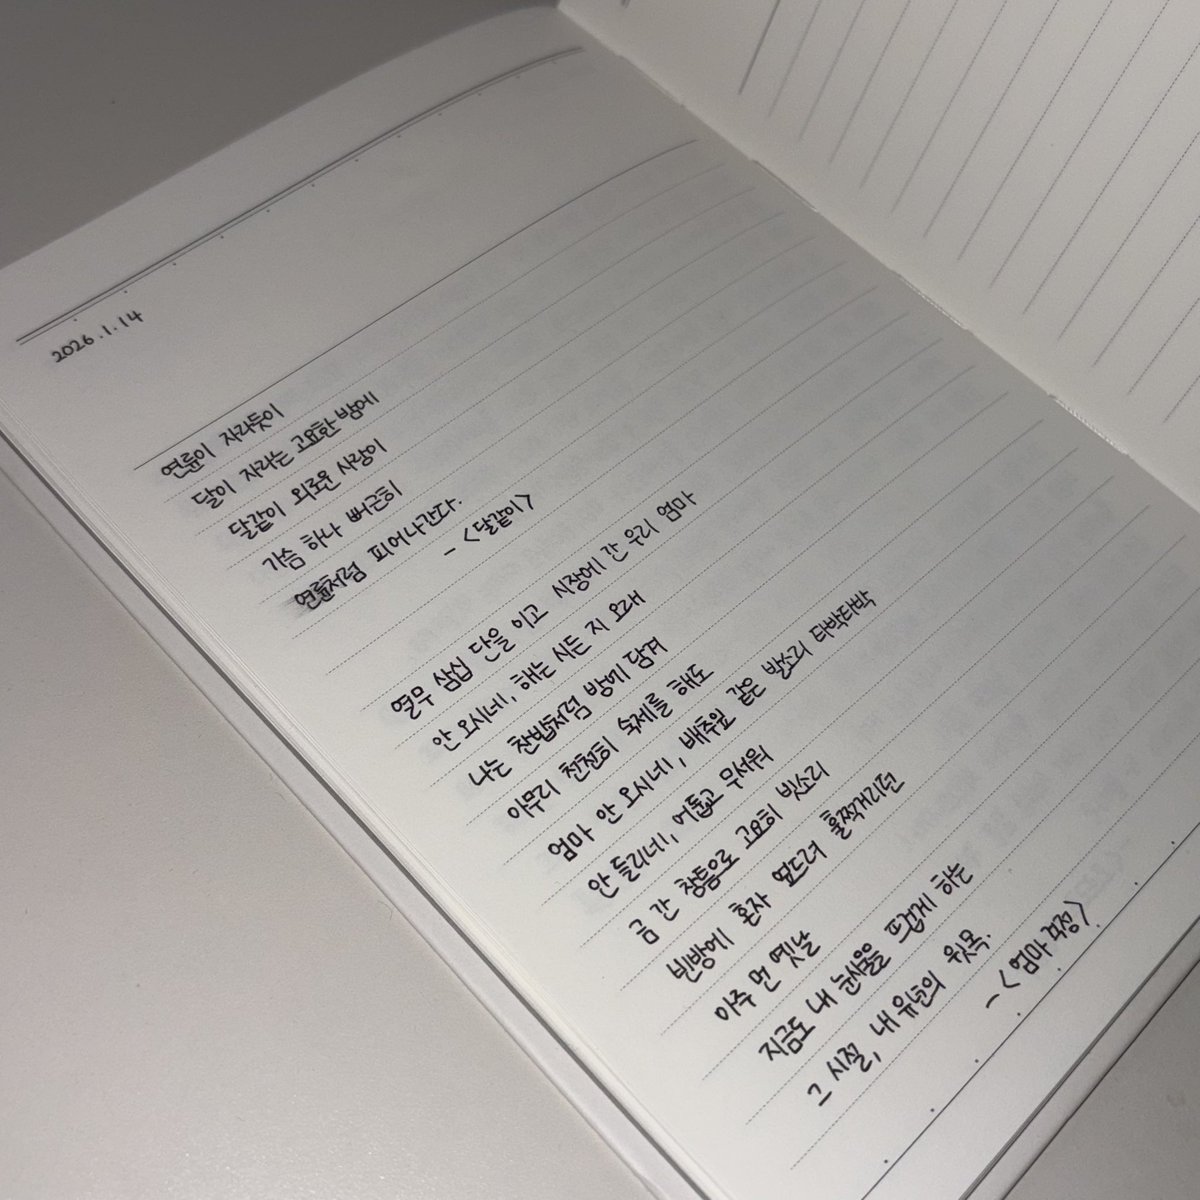 2026.1.14
연륜이 자라듯이
달이 자라는 고요한 밤에
달같이 외로운 사랑이
가슴 하나 뻐근히
연륜처럼 피어나간다.
- <달같이>
열무 삼십 단을 이고 시장에 간 우리 엄마
안 오시네, 해는 시든 지 오래
나는 찬밥처럼 방에 담겨
아무리 천천히 숙제를 해도
엄마 안 오시네, 배추잎 같은 발소리 타박타박
안 들리네, 어둡고 무서워
금 간 창틈으로 고요히 빗소리
빈방에 혼자 엎드려 훌쩍거리던
아주 먼 옛날
지금도 내 눈시울을 뜨겁게 하는
그 시절, 내 유년의 윗목.
- <엄마 걱정>